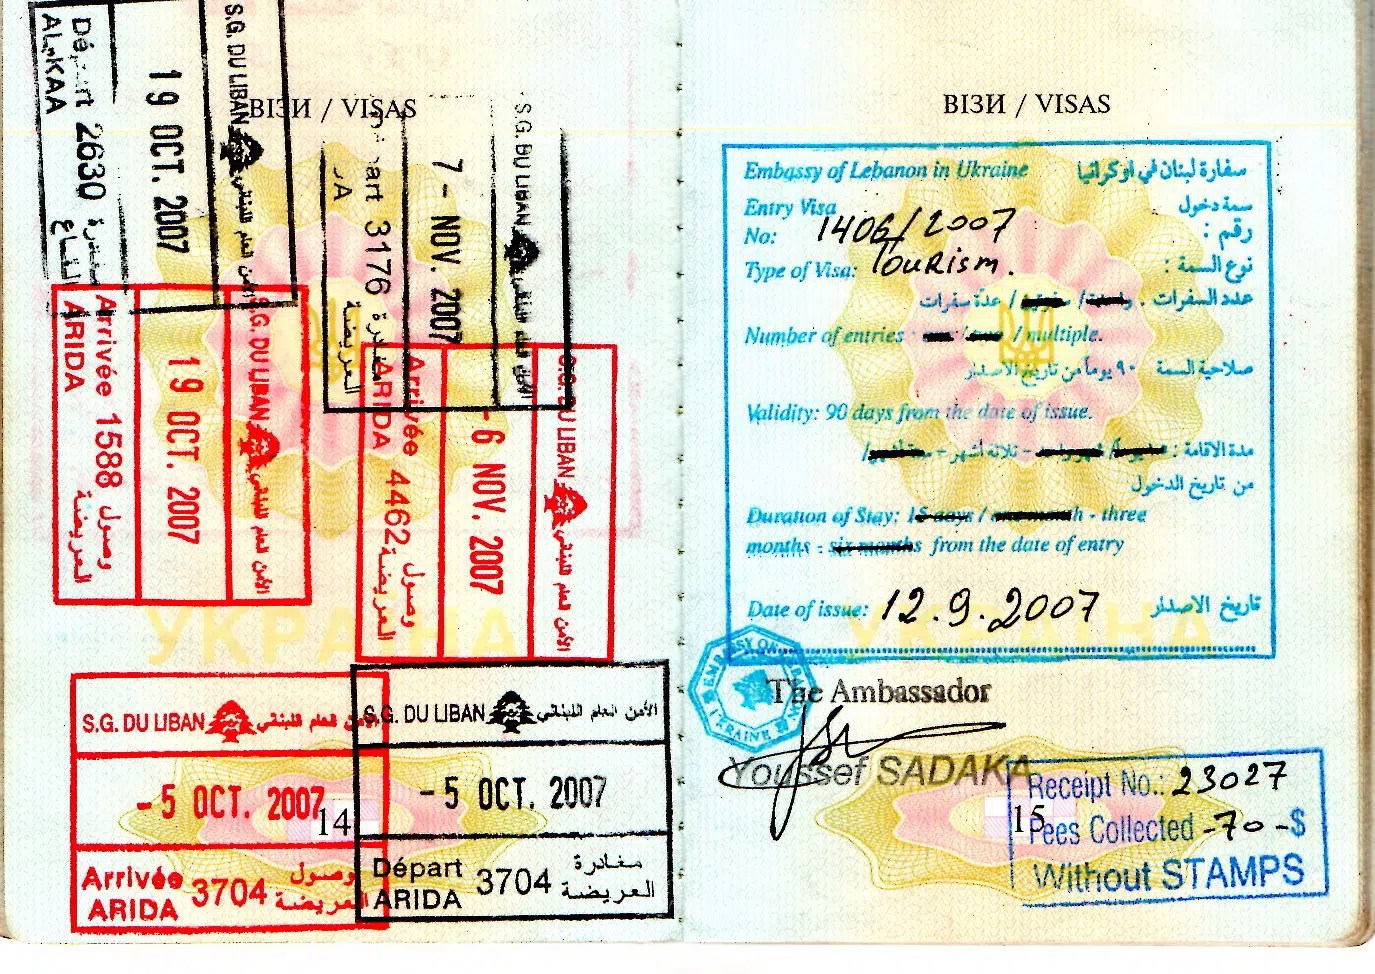 ВІЗИ / VISAS
S.G. DU LIBAN الأمن العام اللبناني
19 OCT. 2007
2630 مغادرة
AL-KAA القاع
S.G. DU LIBAN الأمن العام اللبناني
7 - NOV. 2007
3176
العريضة
S.G. DU LIBAN الأمن العام اللبناني
19 OCT. 2007
Arrivée 1588 وصول
ARIDA العريضة
S.G. DU LIBAN الأمن العام اللبناني
-6 NOV. 2007
Arrivée 4462 وصول
ARIDA العريضة
S.G. DU LIBAN الأمن العام اللبناني
-5 OCT. 2007
Arrivée 3704 وصول
ARIDA العريضة
S.G. DU LIBAN الأمن العام اللبناني
-5 OCT. 2007
Départ 3704 مغادرة
ARIDA العريضة
УКРАЇНА
14
ВІЗИ / VISAS
Embassy of Lebanon in Ukraine سفارة لبنان في اوكرانيا
Entry Visa سمة دخول
No: 1406/2007 رقم :
Type of Visa: Tourism. نوع السمة :
عدد السفرات . / عدّة سفرات
Number of entries : / multiple.
صلاحية السمة ٩٠ يوماً من تاريخ الاصدار
Validity: 90 days from the date of issue.
مدة الاقامة : - ثلاثة أشهر -
من تاريخ الدخول
Duration of Stay: 15 days / one month - three
months - six months from the date of entry
Date of issue: 12.9.2007 تاريخ الاصدار
УКРАЇНА
EMBASSY OF UKRAINE
The Ambassador
Youssef SADAKA
Receipt No.: 23027
Fees Collected -70-$
Without STAMPS
15